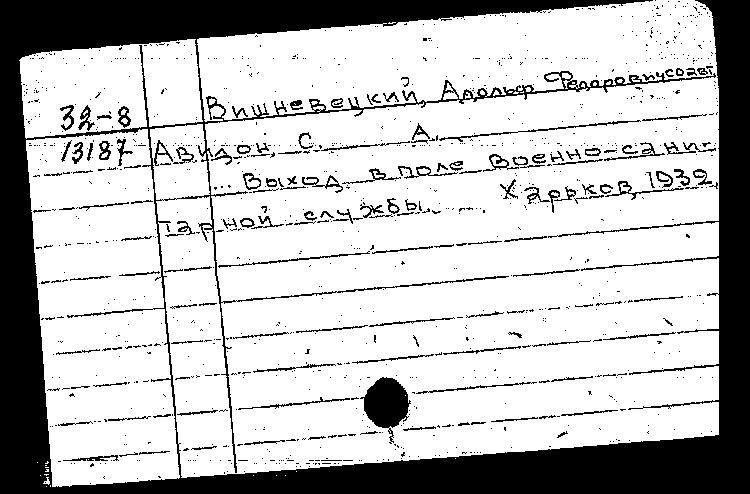 Вишневецкий, Адольф Федорович, соавт.
32-8
13187
Авидон, С. А.
... Выход в поле военно-сани-
тарной службы. ... Харьков, 1932.